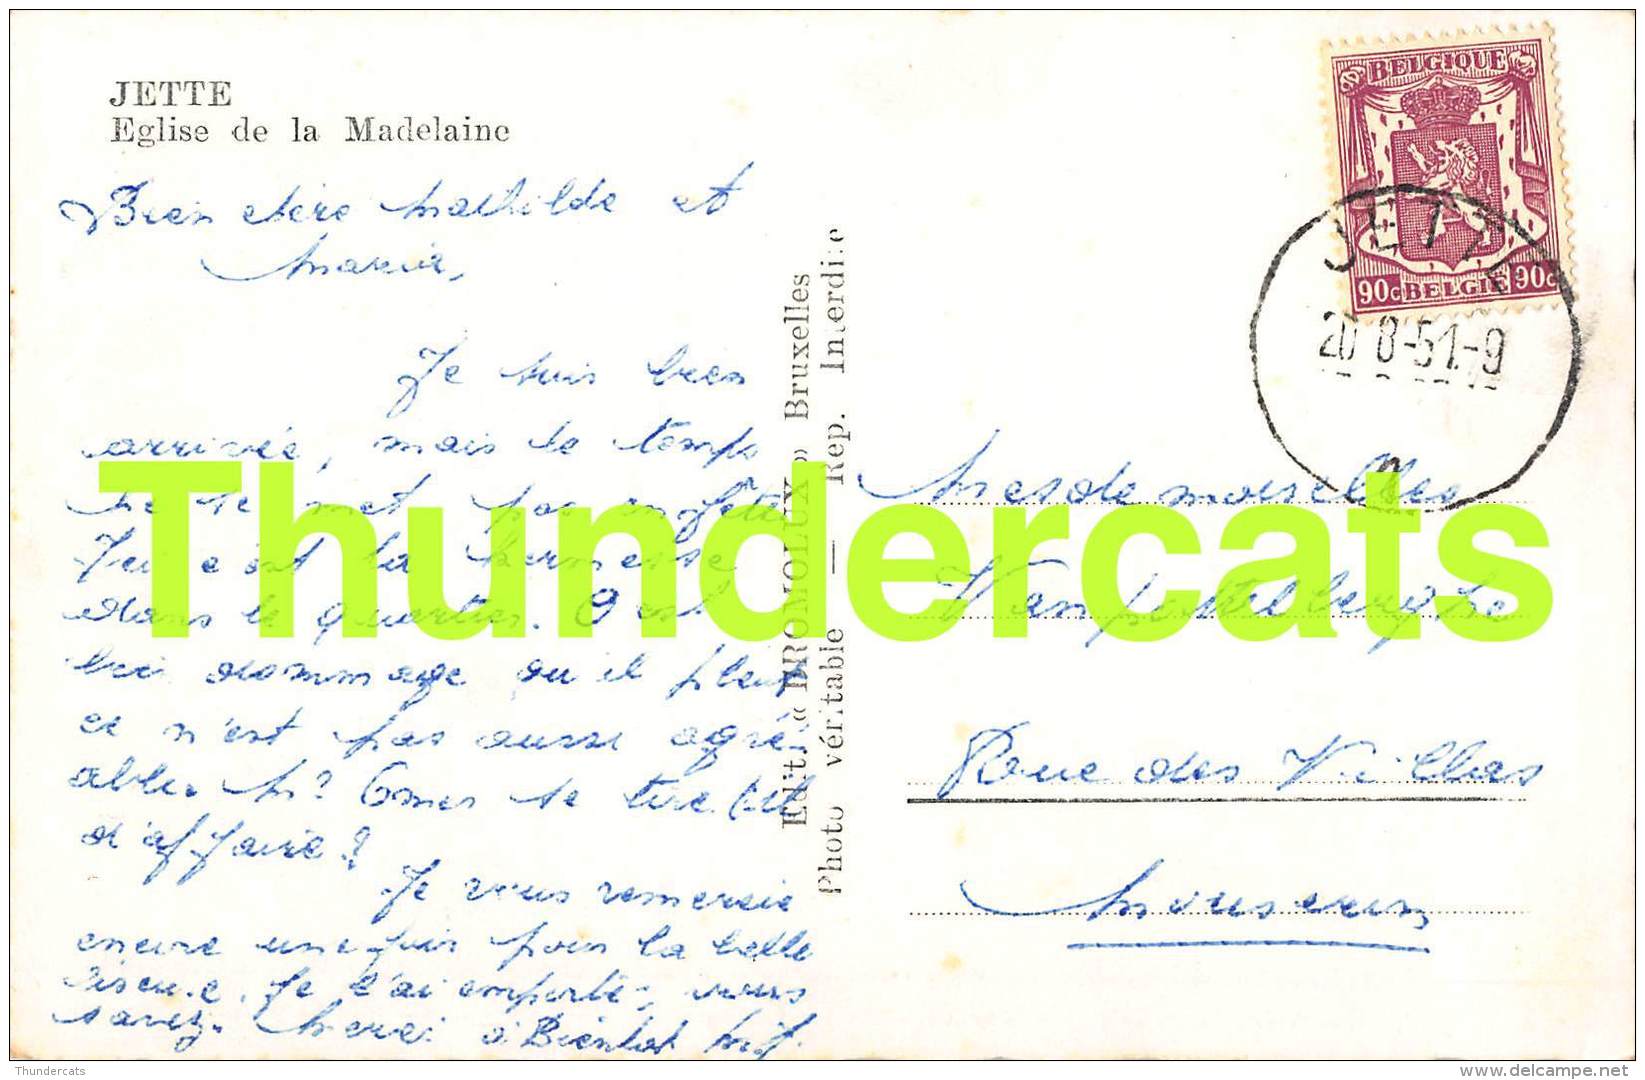 JETTE
Eglise de la Madelaine
Bien chère Mathilde et
Maria,
Je suis bien
arrivée, mais le temps
ne se met pas en fête
Ici c'est la kermesse
dans le quartier. C'est
bien dommage qu'il pleut
ce n'est pas aussi agré-
able. h? Omer se tire til
d'affaire?
Je vous remercie
encore une fois pour la belle
Je l'ai emportée, vous
savez. Merci à Bientot
Edit. « PROMOLUX » Bruxelles
Photo véritable — Rep. Interdite
BELGIQUE
90c BELGIE 90c
JETTE
20 8-51-9
Mesdemoiselles
Rue des Villas
Mouscron
Thundercats
Thundercats
delcampe.net